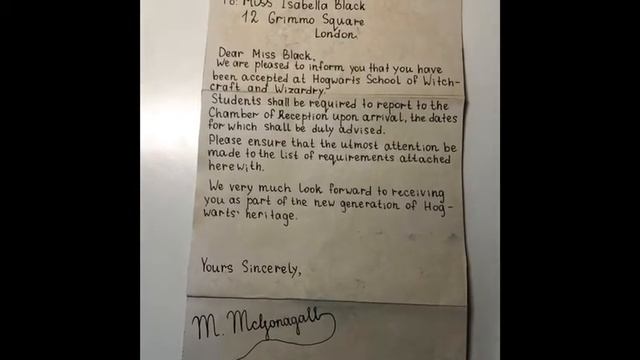 To: Miss Isabella Black
12 Grimmo Square
London
Dear Miss Black,
We are pleased to inform you that you have
been accepted at Hogwarts School of Witch-
craft and Wizardry.
Students shall be required to report to the
Chamber of Reception upon arrival, the dates
for which shall be duly advised.
Please ensure that the utmost attention be
made to the list of requirements attached
herewith.
We very much look forward to receiving
you as part of the new generation of Hog-
warts' heritage.
Yours Sincerely,
M. McGonagall